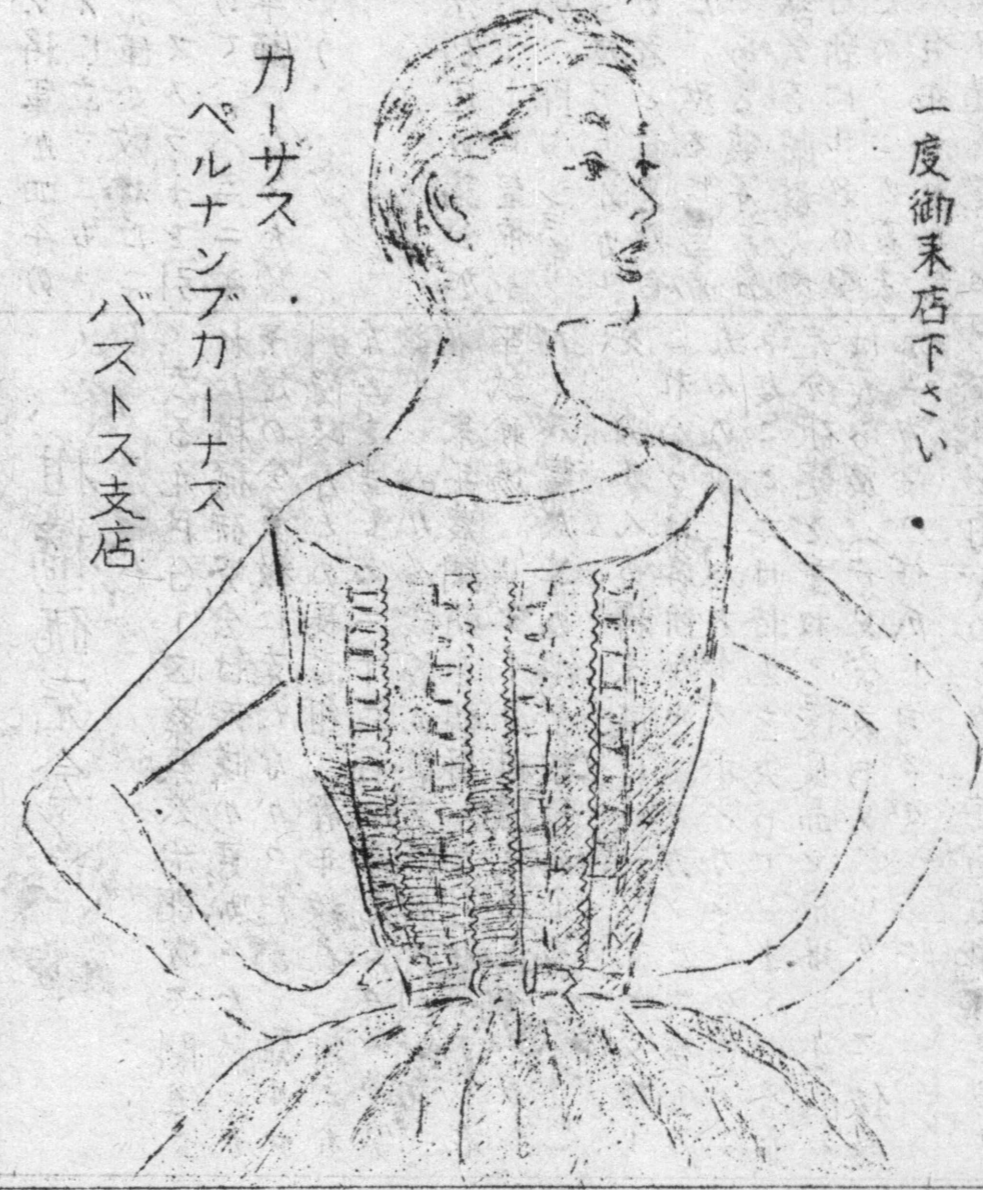 一度御来店下さい。
カーザス
ペルナンブカーナス
バストス支店